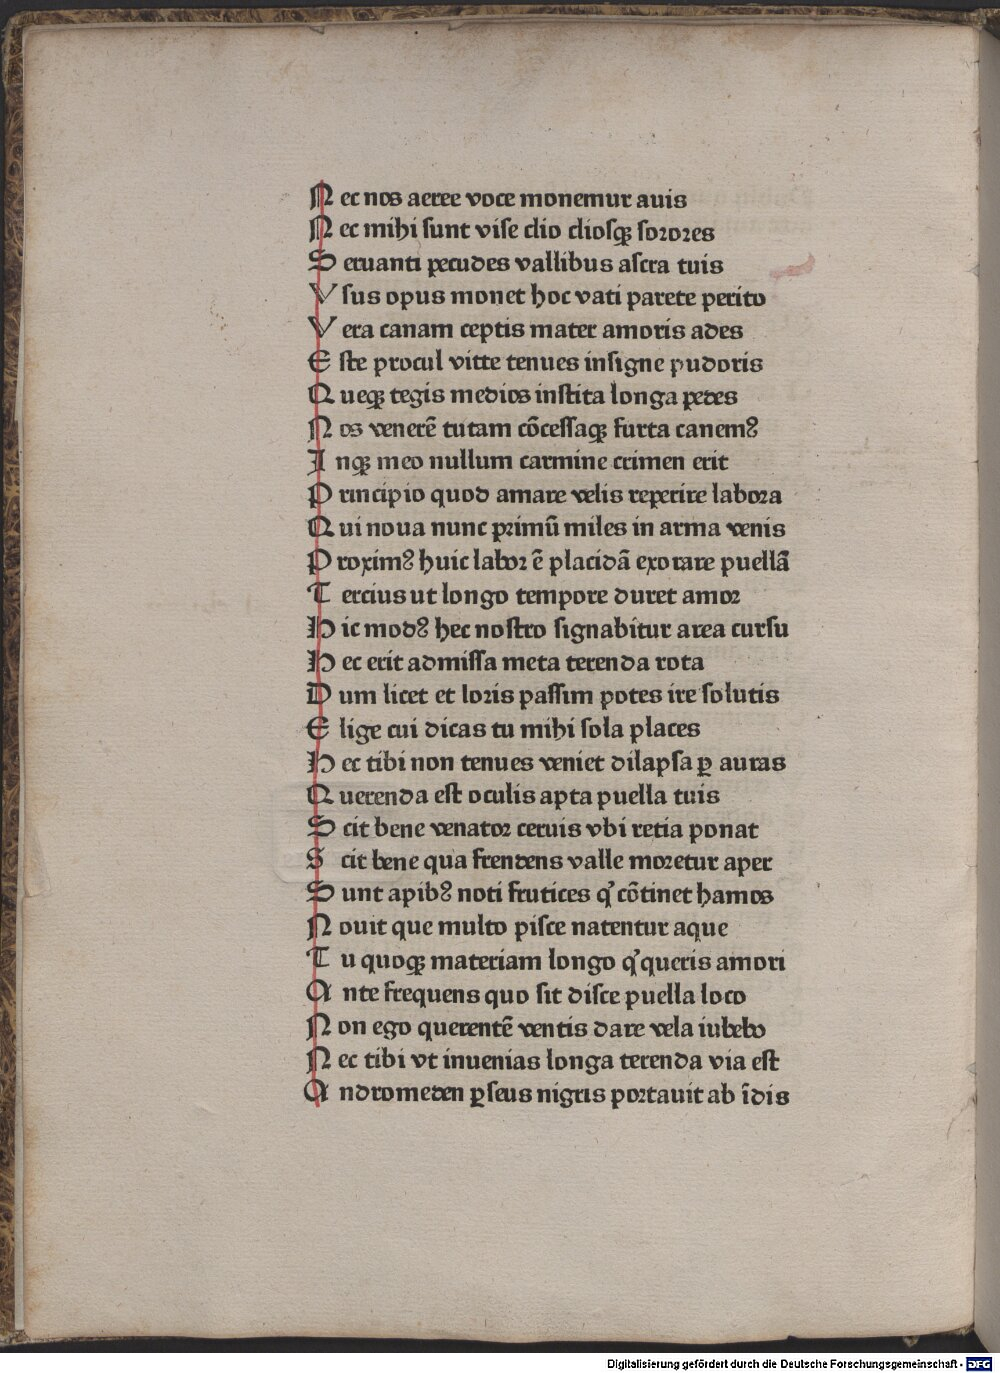 Nec nos aeree voce monemur auis
Nec mihi sunt vise clio cliosqꝫ sorores
Seruanti pecudes vallibus ascra tuis
Vsus opus monet hoc vati parete perito
Vera canam ceptis mater amoris ades
Este procul vitte tenues insigne pudoris
Queqꝫ tegis medios instita longa pedes
Nos venerē tutam cōcessaqꝫ furta canemꝰ
Inqꝫ meo nullum carmine crimen erit
Principio quod amare velis reperire labora
Qui noua nunc primū miles in arma venis
Proximꝰ huic labor ē placidā exorare puellā
Tercius ut longo tempore duret amor
Hic modꝰ hec nostro signabitur area cursu
Hec erit admissa meta terenda rota
Dum licet et loris passim potes ire solutis
Elige cui dicas tu mihi sola places
Hec tibi non tenues veniet dilapsa ꝑ auras
Querenda est oculis apta puella tuis
Scit bene venator ceruis vbi retia ponat
Scit bene qua frendens valle moretur aper
Sunt apibꝰ noti frutices qͥ cōtinet hamos
Nouit que multo pisce natentur aque
Tu quoqꝫ materiam longo qͥ queris amori
Ante frequens quo sit disce puella loco
Non ego querentē ventis dare vela iubebo
Nec tibi vt inuenias longa terenda via est
Andromeden ꝑseus nigris portauit ab īdis
Digitalisierung gefördert durch die Deutsche Forschungsgemeinschaft - DFG